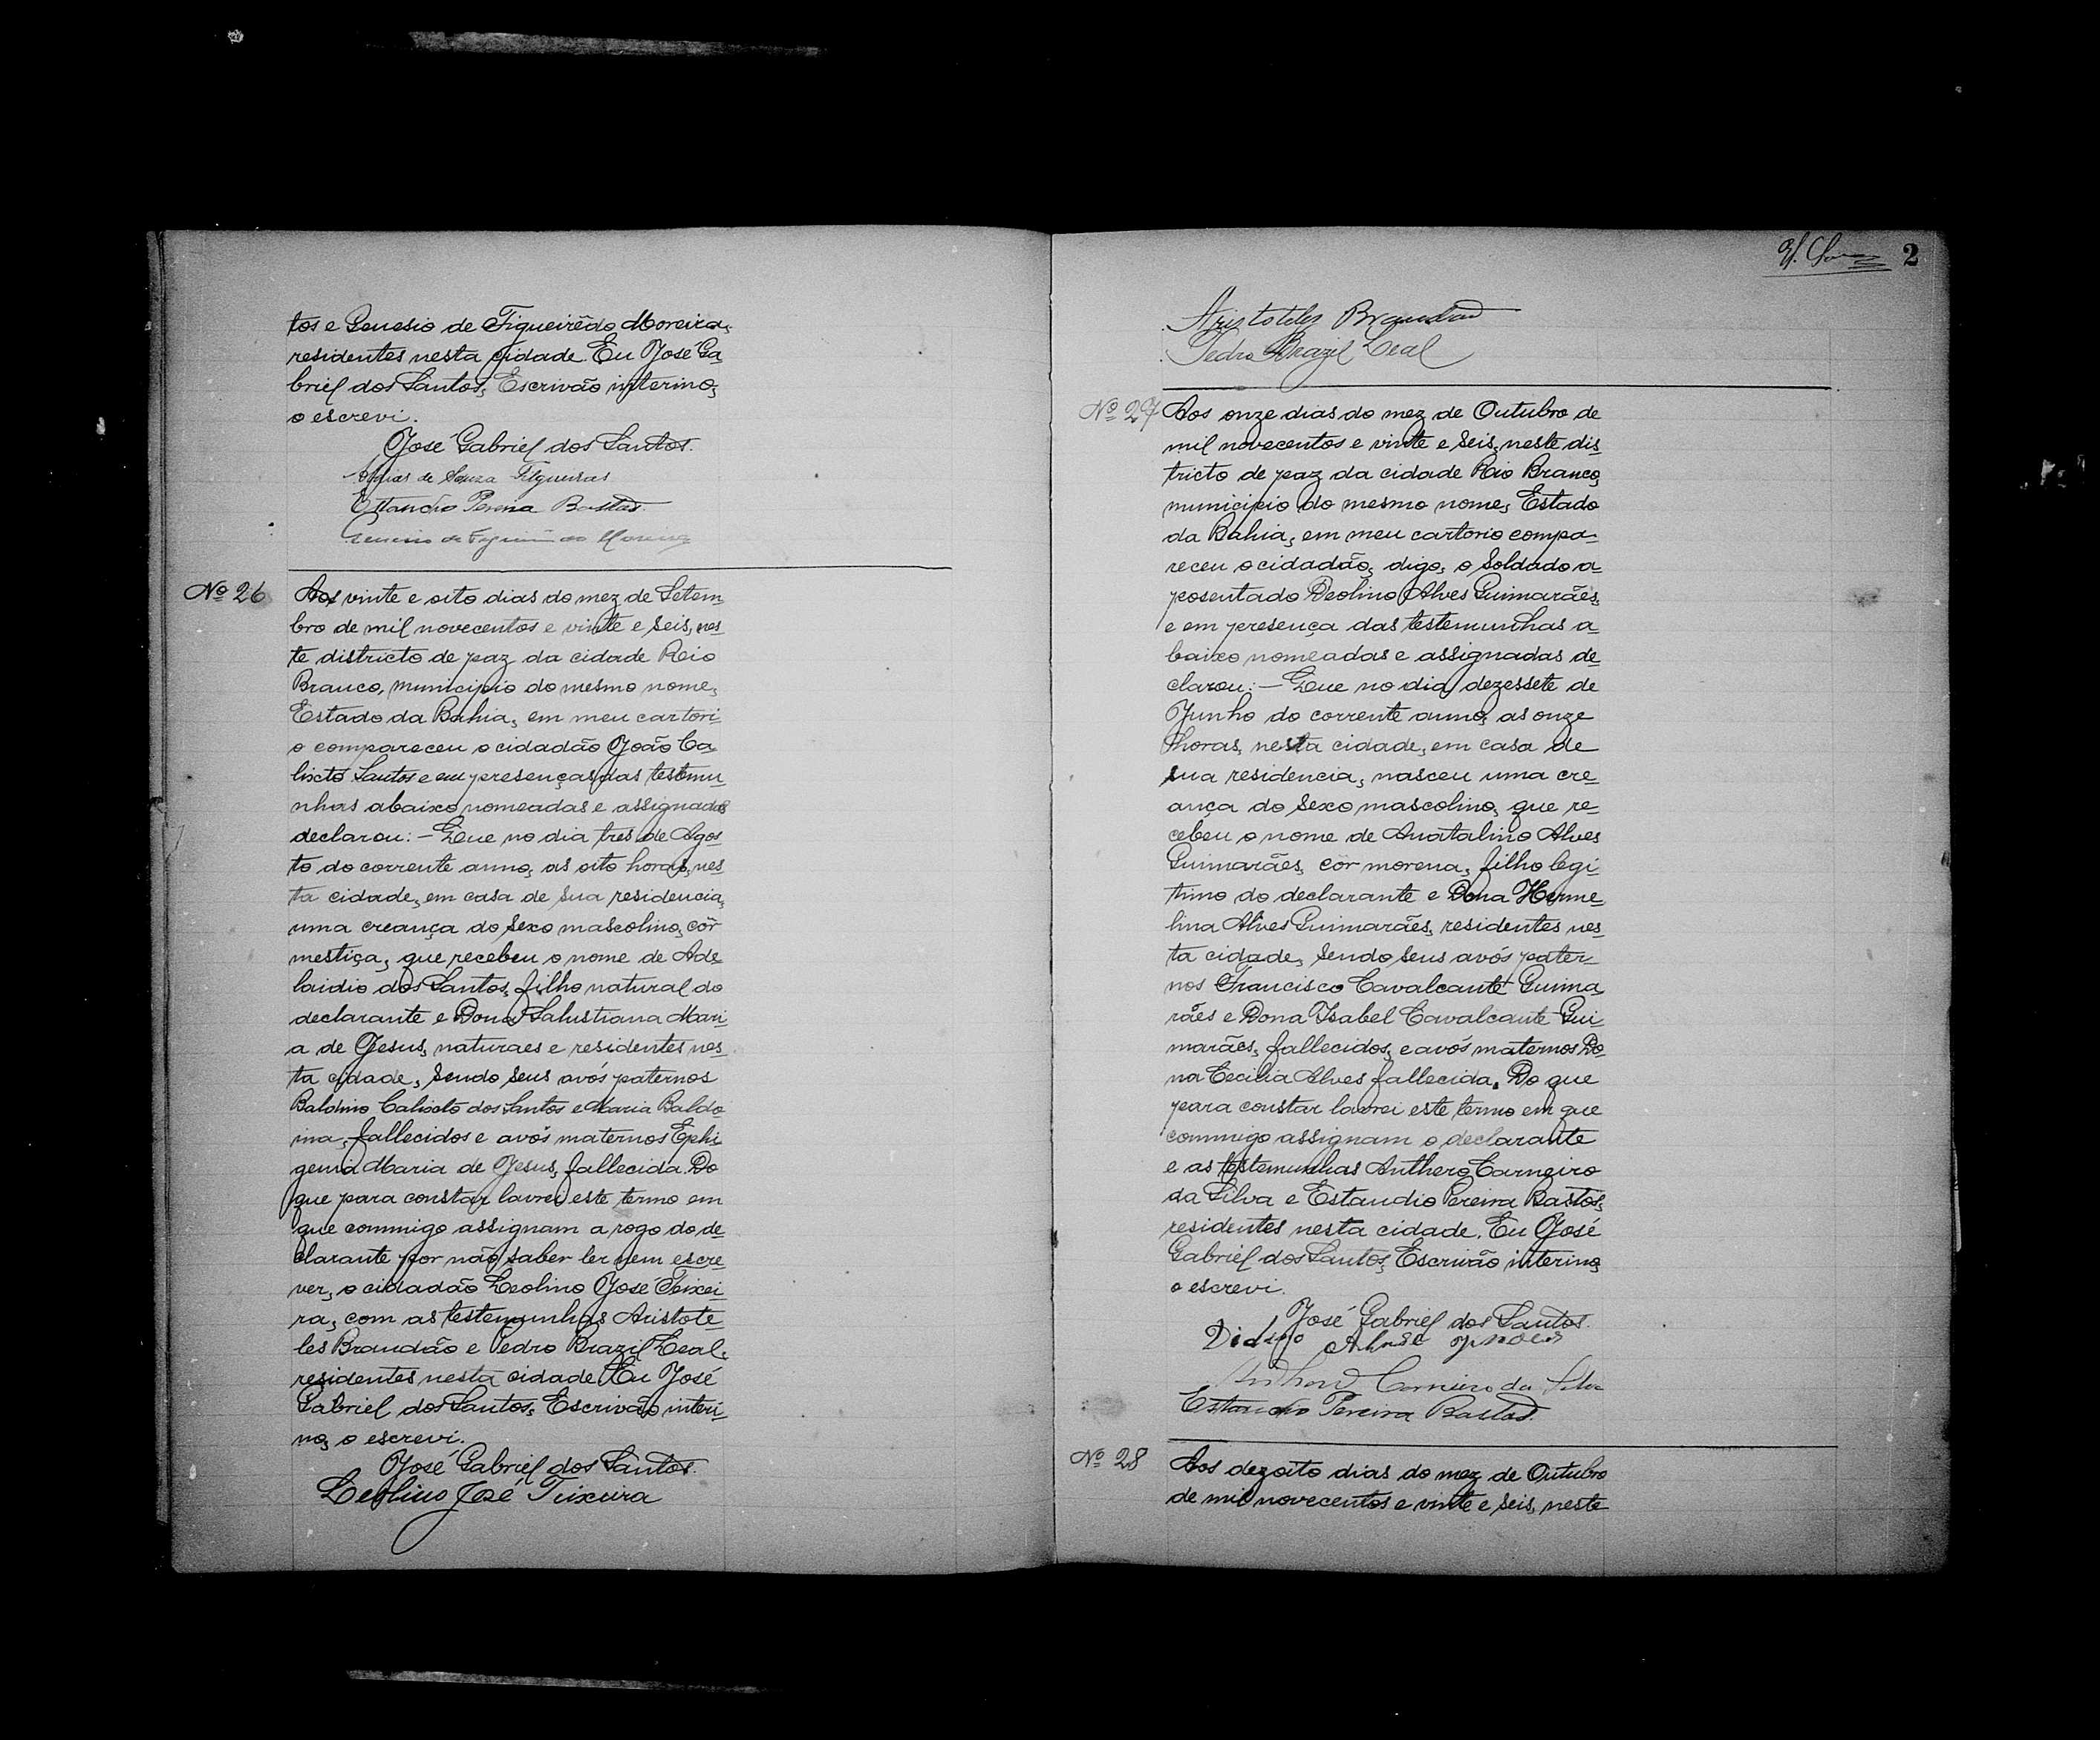 tos e Genesio de Figueirêdo Moreira,
residentes nesta cidade. Eu José Ga
briel dos Santos, Escrivão interino,
o escrevi.
José Gabriel dos Santos.
de Souza Figueiras
Estandio Pereira Bastos.
Genesio de Figueirêdo Moreira
Nº 26
Aos vinte e oito dias do mez de Setem
bro de mil novecentos e vinte e seis, nes
te districto de paz da cidade Rio
Branco, municipio do mesmo nome,
Estado da Bahia, em meu cartori
o compareceu o cidadão João Ca
lixto Santos e em presença das testemu
nhas abaixo nomeadas e assignadas
declarou: – Que no dia tres de Agos
to do corrente anno, as oito horas, nes
ta cidade, em casa de sua residencia,
uma creança do sexo mascolino, côr
mestiça, que recebeu o nome de Ade
laidio dos Santos, filho natural do
declarante e Dona Salustiana Mari
a de Jesus, naturaes e residentes nes
ta cidade, sendo seus avós paternos
Baldino Calixto dos Santos e Maria Baldo
ina, fallecidos e avós maternos Ephi
genia Maria de Jesus, fallecida. Do
que para constar lavrei este termo em
que commigo assignam a rogo do de
clarante por não saber ler nem escre
ver, o cidadão Leolino José Teixei
ra, com as testemunhas Aristote
les Brandão e Pedro Brazil Leal,
residentes nesta cidade. Eu José
Gabriel dos Santos, Escrivão interi
no, o escrevi.
José Gabriel dos Santos.
Leolino José Teixeira
2
Aristoteles Brandão
Pedro Brazil Leal
Nº 27
Aos onze dias do mez de Outubro de
mil novecentos e vinte e seis, neste dis
tricto de paz da cidade Rio Branco,
municipio do mesmo nome, Estado
da Bahia, em meu cartorio compa
receu o cidadão, digo, o Soldado a
posentado Deolino Alves Guimarães,
e em presença das testemunhas a
baixo nomeadas e assignadas de
clarou: – Que no dia dezessete de
Junho do corrente anno, as onze
horas, nesta cidade, em casa de
sua residencia, nasceu uma cre
ança do sexo mascolino, que re
cebeu o nome de Anatalino Alves
Guimarães, côr morena, filho legi
timo do declarante e Dona Herme
lina Alves Guimarães, residentes nes
ta cidade, sendo seus avós pater
nos Francisco Cavalcante Guima
rães e Dona Isabel Cavalcante Gui
marães, fallecidos, e avós maternos Do
na Cecilia Alves fallecida. Do que
para constar lavrei este termo em que
commigo assignam o declarante
e as testemunhas Anthero Carneiro
da Silva e Estandio Pereira Bastos,
residentes nesta cidade. Eu José
Gabriel dos Santos, Escrivão interino,
o escrevi.
José Gabriel dos Santos.
Carneiro da Silva
Estandio Pereira Bastos.
Nº 28
Aos dezoito dias do mez de Outubro
de mil novecentos e vinte e seis, neste